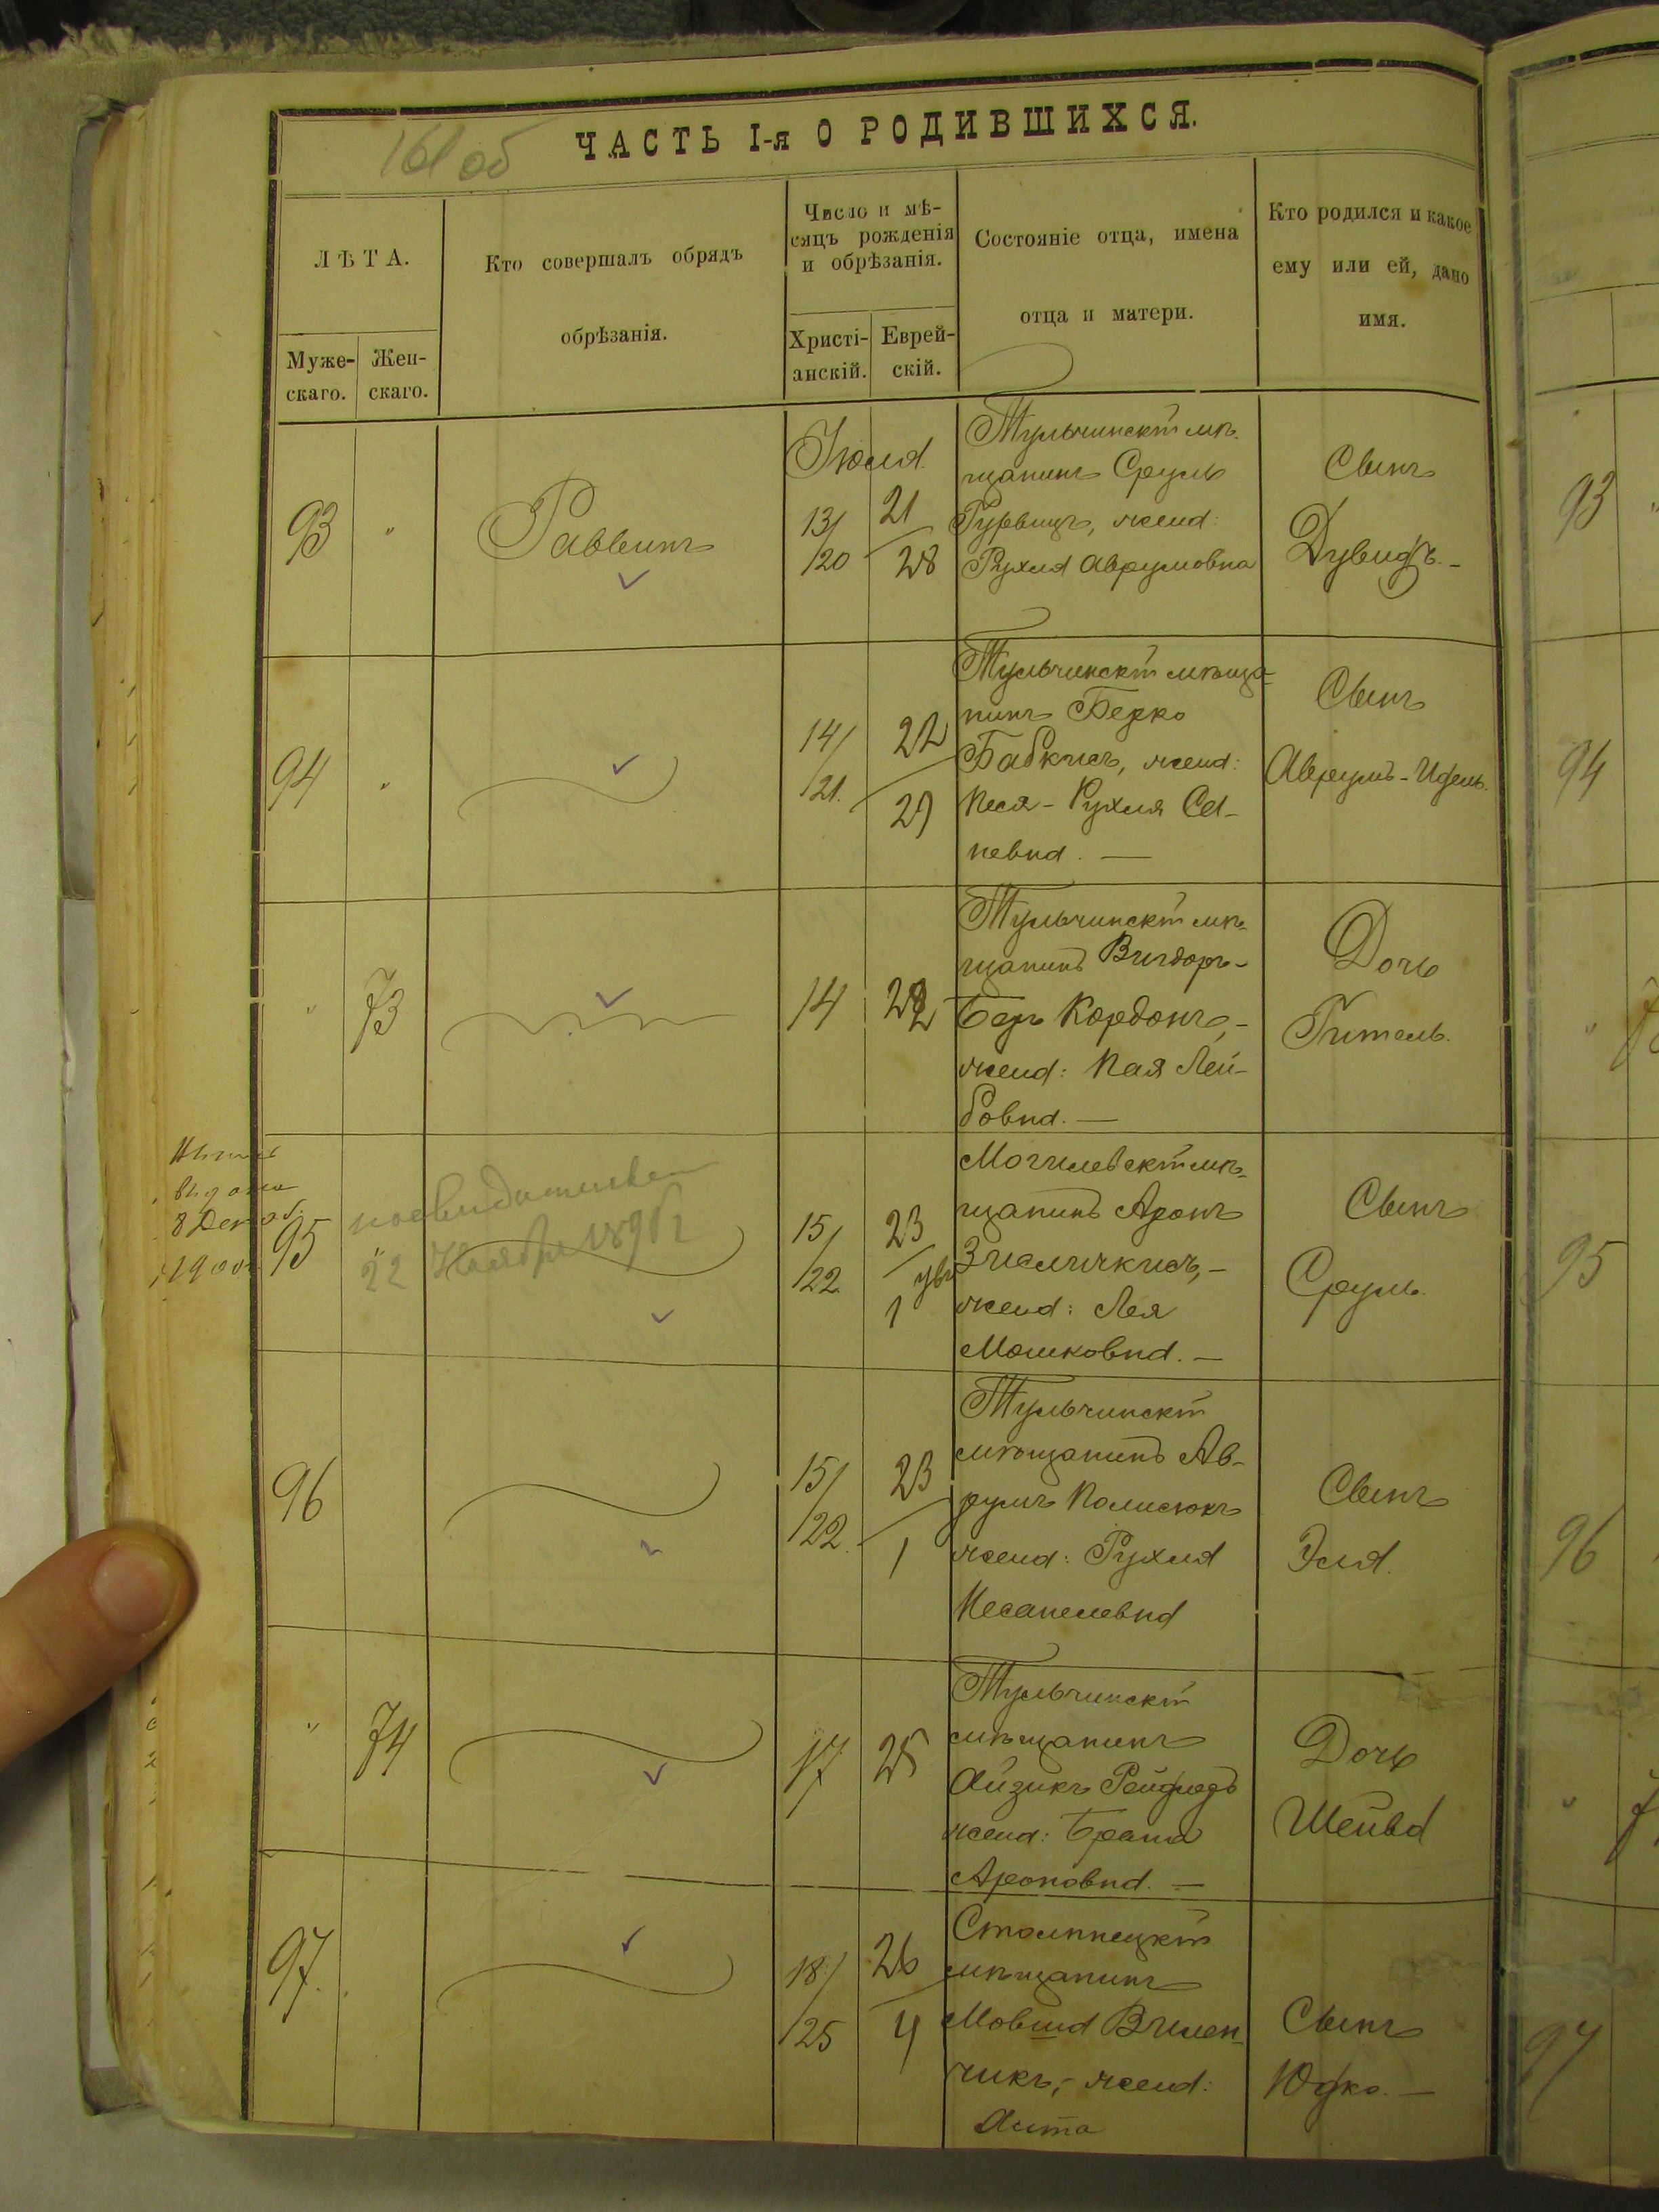 161 об
ЧАСТЬ I-я О РОДИВШИХСЯ.
ЛѢТА.
Муже-
скаго.
Жен-
скаго.
Кто совершалъ обрядъ
обрѣзанія.
Число и мѣ-
сяцъ рожденія
и обрѣзанія.
Христі-
анскій.
Еврей-
скій.
Состояніе отца, имена
отца и матери.
Кто родился и какое
ему или ей, дано
имя.
93
"
Раввинъ
Іюля
13/
/20
21
28
Тульчинскій мѣ-
щанинъ Сруль
Гурвицъ, жена:
Рухля Аврумовна
Сынъ
Дувидъ. -
94
"
14/
/21.
22
29
Тульчинскій мѣща-
нинъ Берко
жена:
Песя - Рухля
Сынъ
Аврумъ-Идель.
"
73
14
22
Тульчинскій мѣ-
щанинъ Вигдоръ-
Беръ Кордонъ, -
жена: Пая Лей-
бовна. —
Дочь
Гитель.
выдана
8 Декаб.
95
22 Ноября
15/
/22.
23
1
Могилевскій мѣ-
щанинъ Аронъ
жена: Лея
Мошковна. —
Сынъ
Сруль.
96
15/
/22.
23
1
Тульчинскій
мѣщанинъ Ав-
румъ Полисюкъ
жена: Рухля
Сынъ
Эля.
"
74
17
25
Тульчинскій
мѣщанинъ
Айзикъ
жена:
Ароновна. —
Дочь
Шейва
97.
18/
/25
26
4
мѣщанинъ
Мовша Вилен-
чикъ, - жена:
Сынъ
Юдко. —
93
94
95
96
97